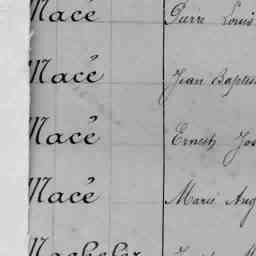 Macé Pierre Louis
Macé Jean Baptis
Macé Ernest Jos
Macé Marie Aug